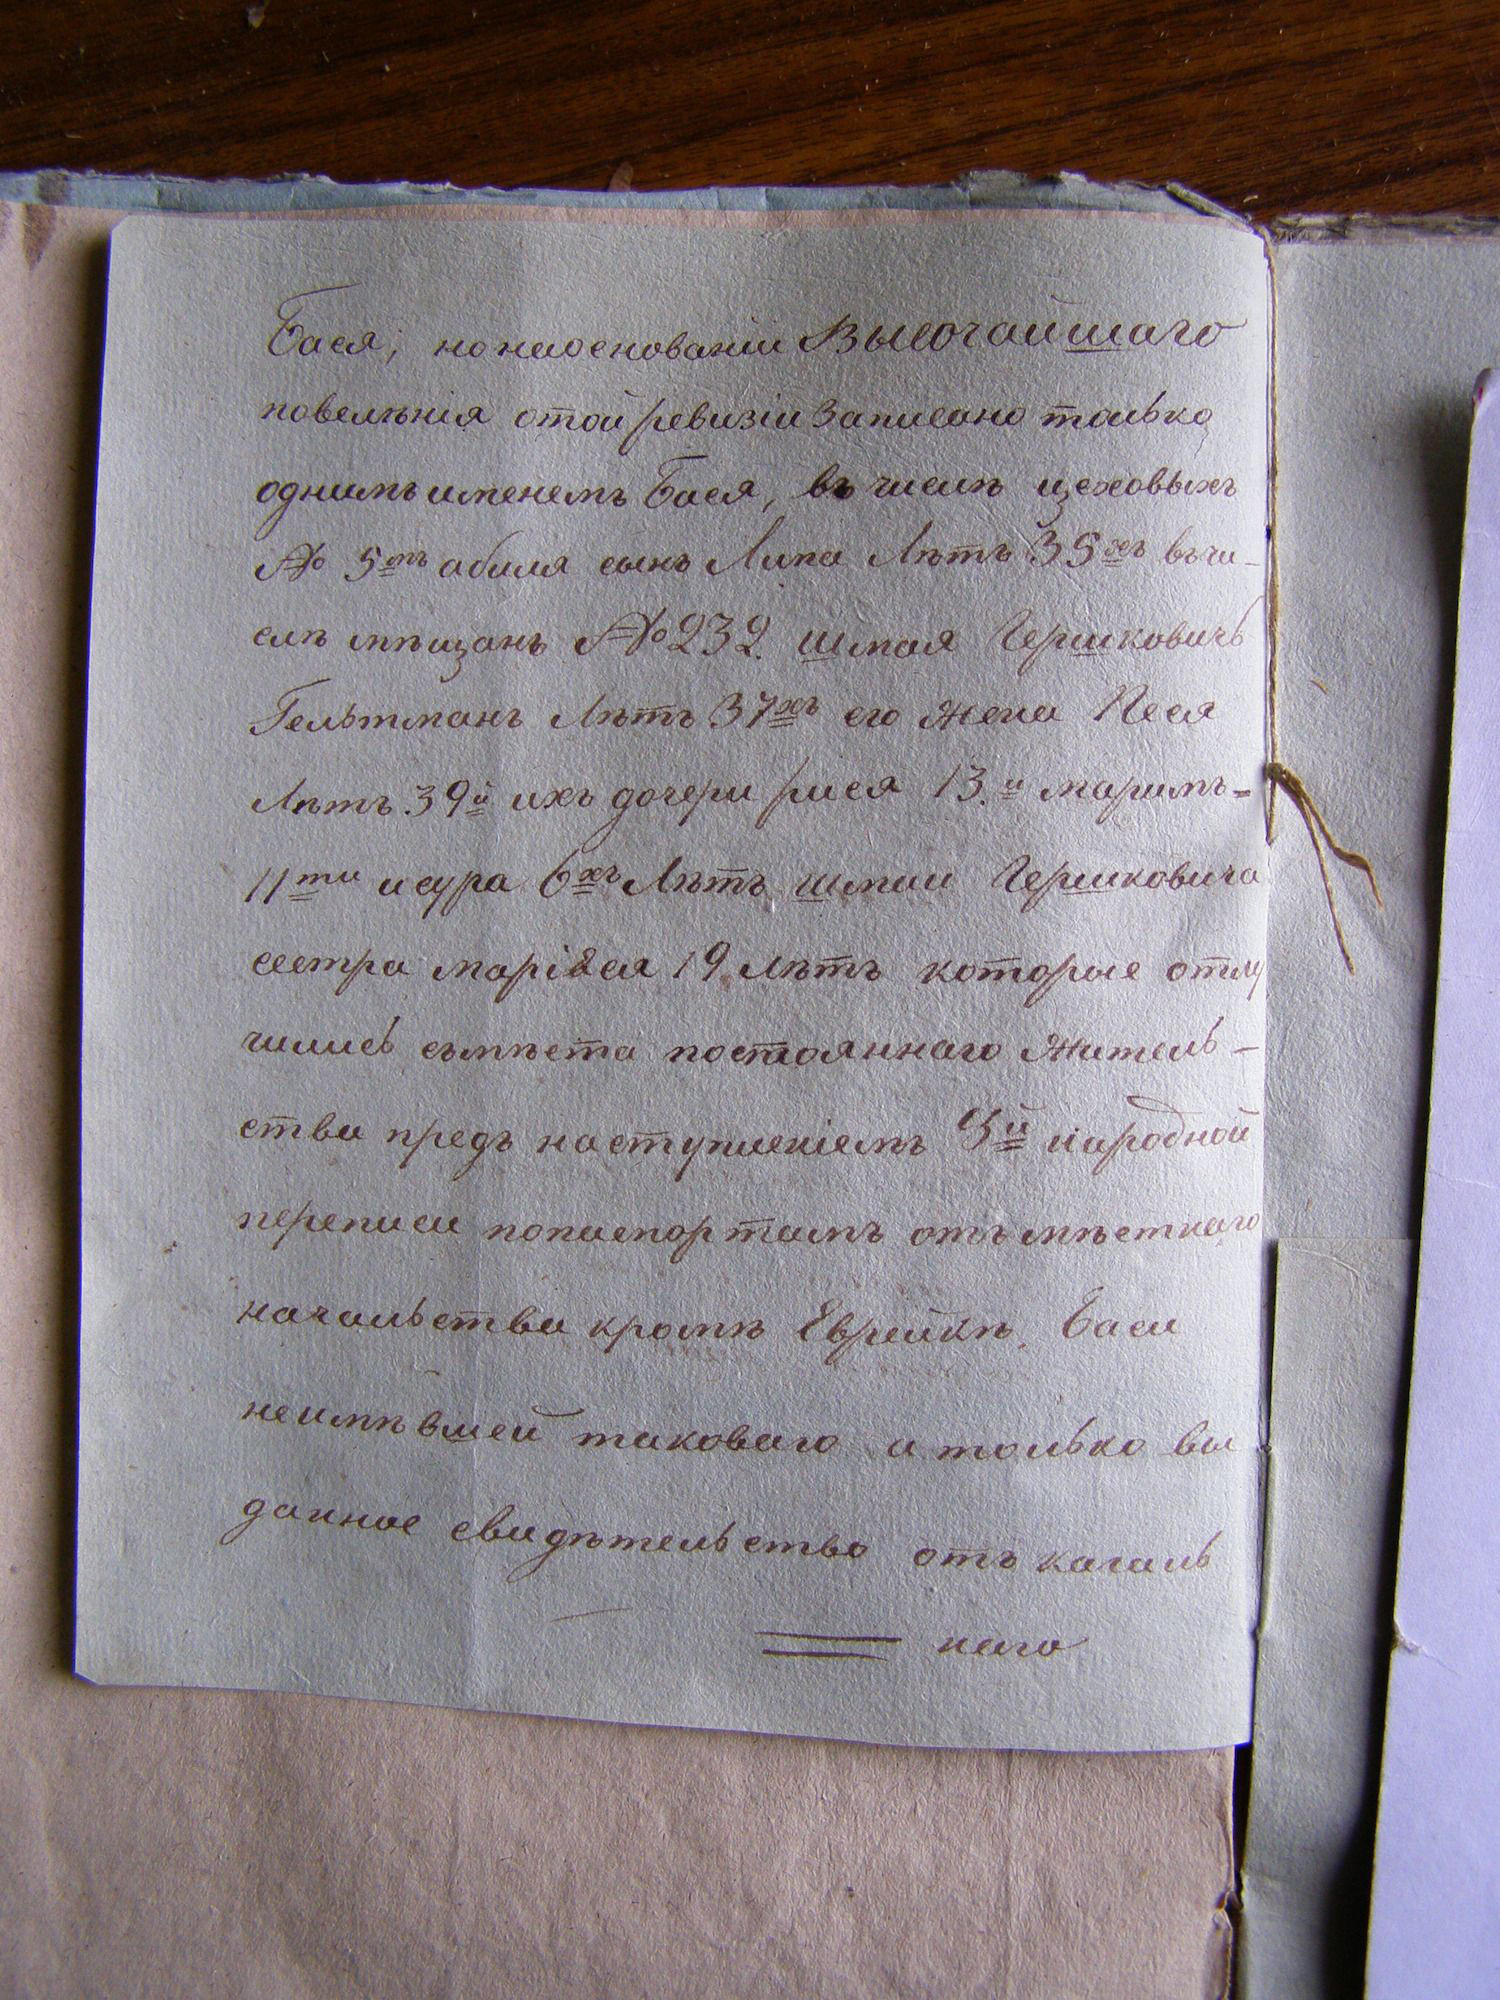 Бася, но наоснованіи Высочайшаго
повелѣнія отой ревизіи записано только
однимъ именемъ Бася, въ числѣ цеховыхъ
№ 5мъ абиля сынъ Липа Лѣтъ 35хъ въчи-
слѣ мѣщанъ №232. шмая Гершковичъ
Гельтманъ Лѣтъ 37хъ его жена Песя
Лѣтъ 39й ихъ дочери рися 13.и маримъ=
11ти исура 6хъ Лѣтъ шмаи Гершковича
сестра 19 лѣтъ которые отлу
чились съмѣста постояннаго жительь-
ства предъ наступленіемъ 9й народной
переписи попаспортамъ отъ мѣстнаго
начальства кромѣ Еврейкѣ Баси
неимѣвшей таковаго а только вы
данное свидѣтельство отъ кагаль
наго